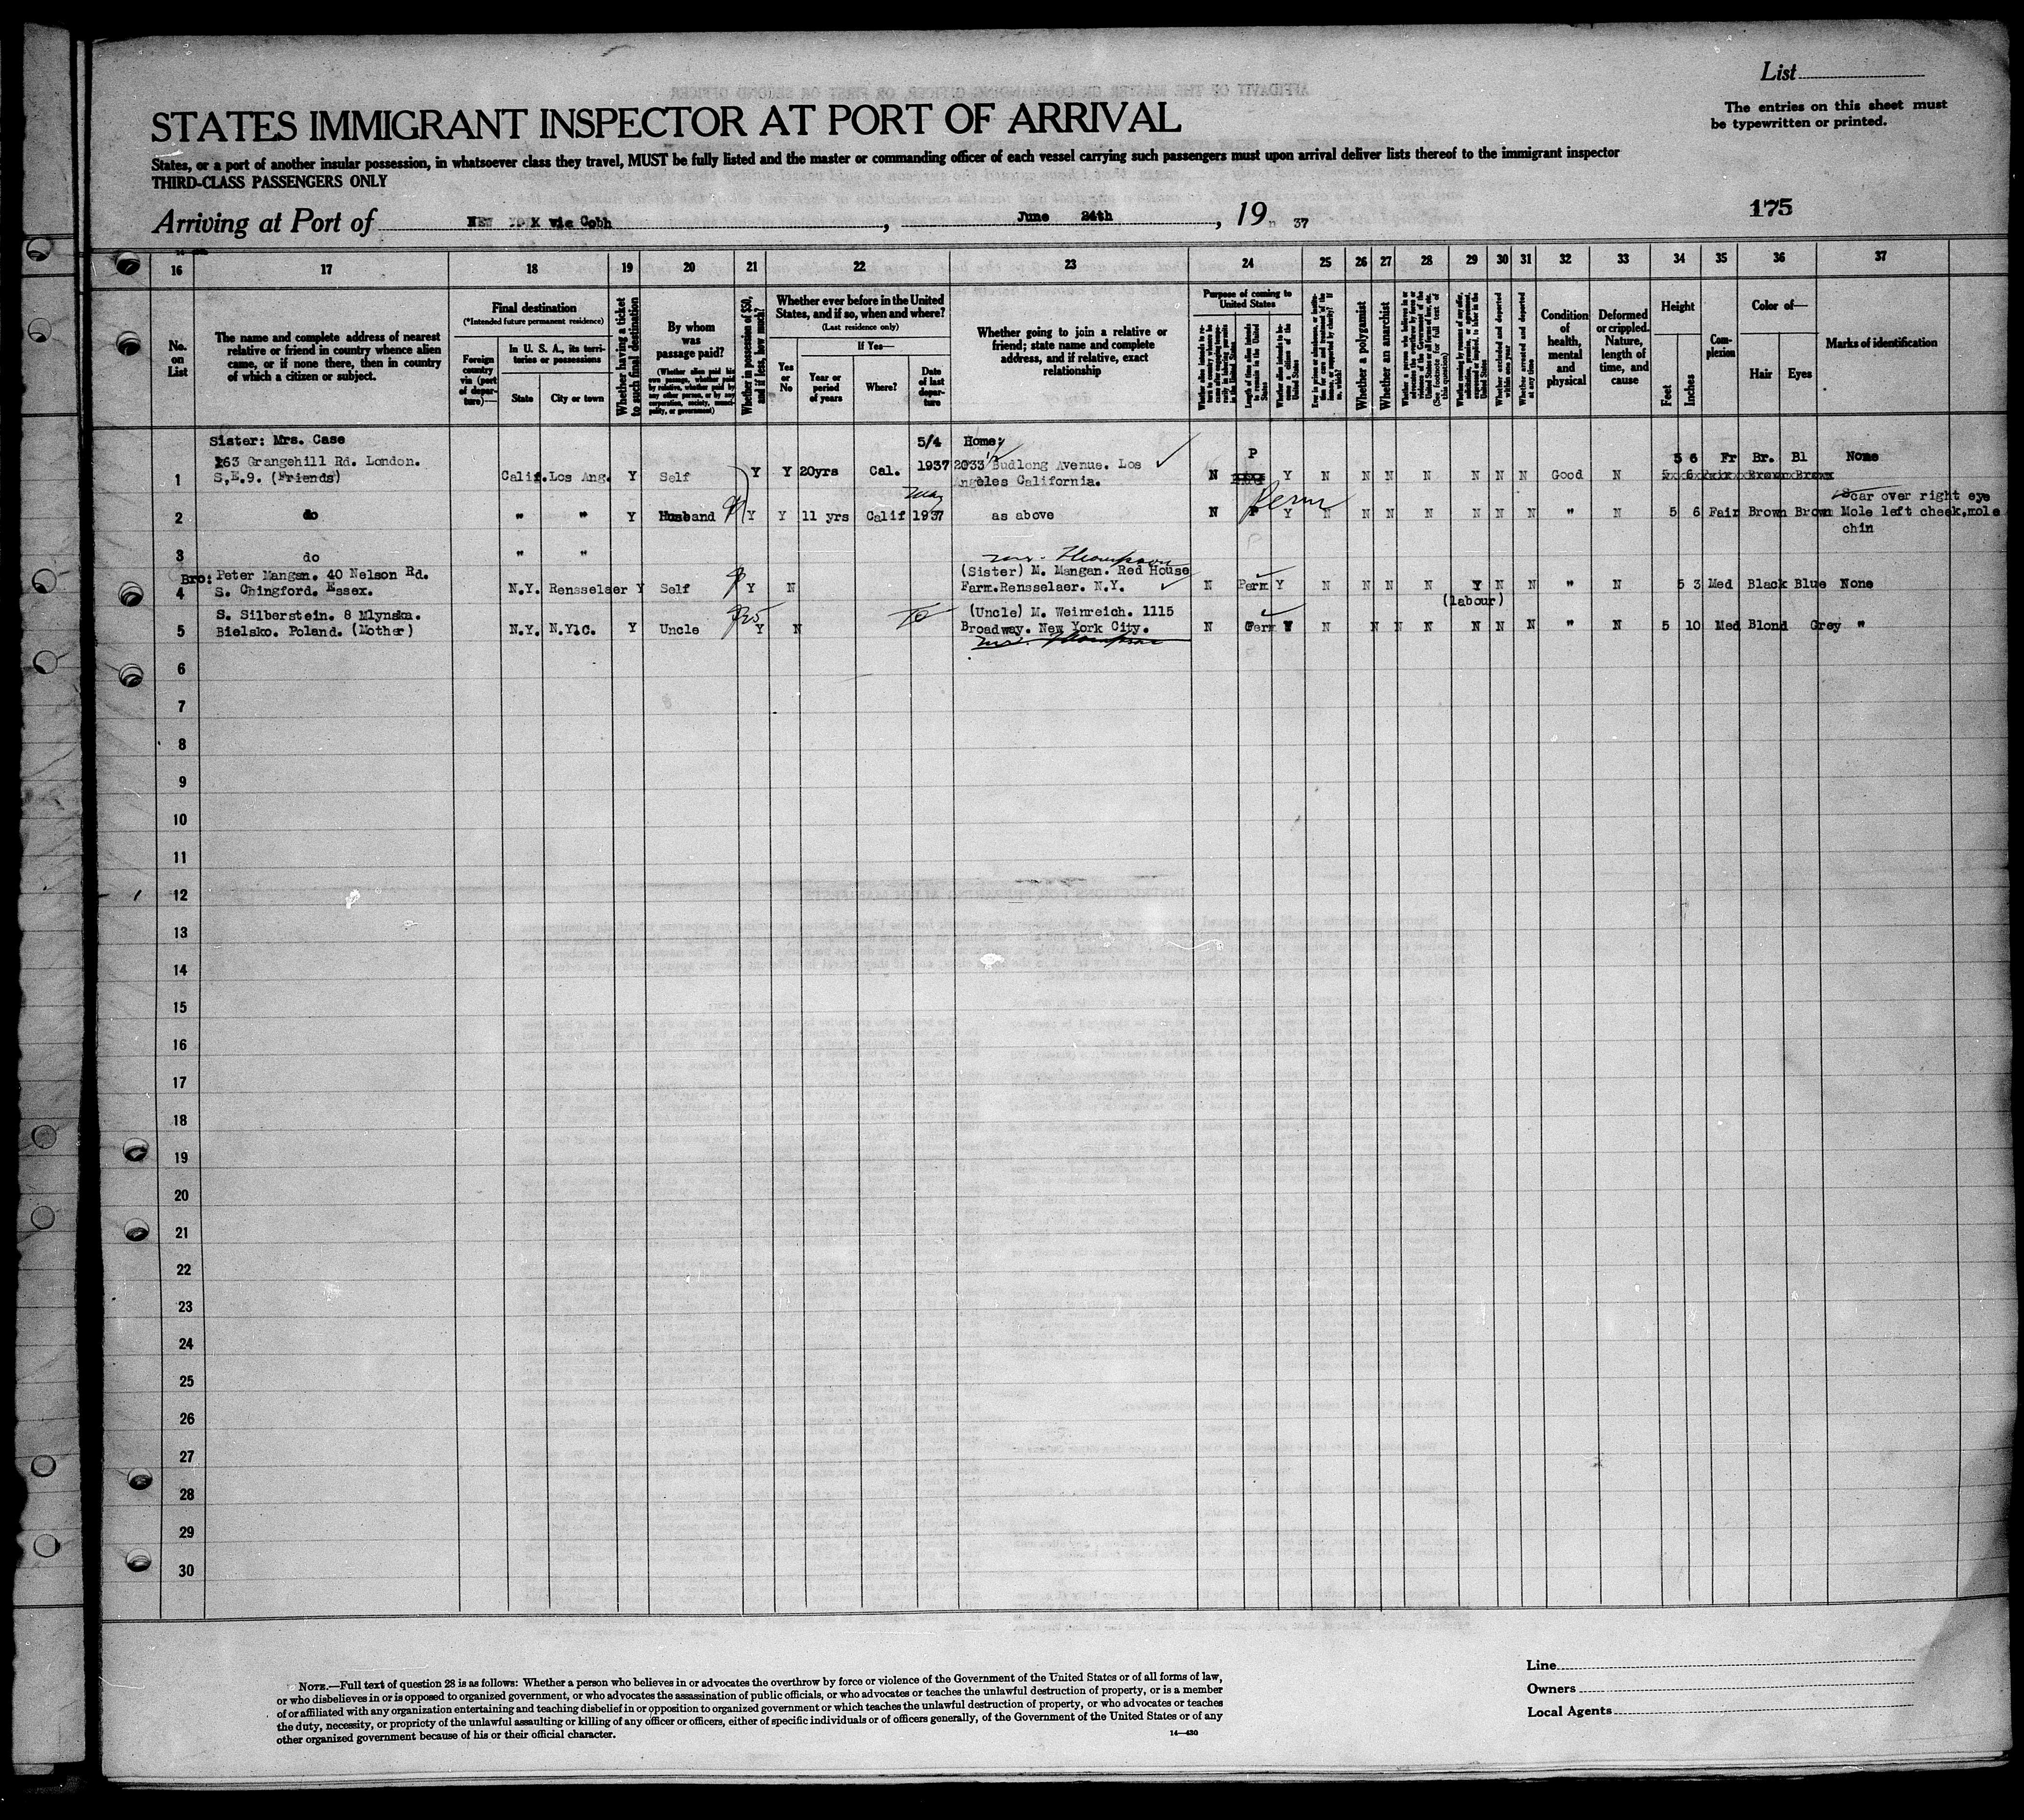 List
The entries on this sheet must
be typewritten or printed.
STATES IMMIGRANT INSPECTOR AT PORT OF ARRIVAL
States, or a port of another insular possession, in whatsoever class they travel, MUST be fully listed and the master or commanding officer of each vessel carrying such passengers must upon arrival deliver lists thereof to the immigrant inspector
THIRD-CLASS PASSENGERS ONLY
Arriving at Port of NEW YORK via Cobh, June 24th, 19 37
175
16 17 18 19 20 21 22 23 24 25 26 27 28 29 30 31 32 33 34 35 36 37
No. on List
The name and complete address of nearest
relative or friend in country whence alien
came, or if none there, then in country
of which a citizen or subject.
Final destination
(*Intended future permanent residence)
Foreign country via (port of departure)—
In U. S. A., its territories or possessions
State
City or town
Whether having a ticket to such final destination
By whom was passage paid?
(Whether alien paid his own passage, whether paid by relative, whether paid by any other person, or by any corporation, society, municipality, or government)
Whether in possession of $50, and if less, how much?
Whether ever before in the United
States, and if so, when and where?
(Last residence only)
Yes or No
If Yes—
Year or period of years
Where?
Date of last departure
Whether going to join a relative or
friend; state name and complete
address, and if relative, exact
relationship
Purpose of coming to United States
Length of time alien intends to remain in the United States
Whether alien intends to become a citizen of the United States
Whether a polygamist
Whether an anarchist
(See footnote for full text of this question)
Whether excluded and deported within one year
Whether arrested and deported at any time
Condition of health, mental and physical
Deformed or crippled. Nature, length of time, and cause
Height
Feet
Inches
Complexion
Color of—
Hair
Eyes
Marks of identification
Sister: Mrs. Case 5/4 Home: P
163 Grangehill Rd. London. 1937 2033 1/2 Budlong Avenue. Los 5 6 Fr Br. Bl None
1 S.E.9. (Friends) Calif. Los Ang. Y Self Y Y 20yrs Cal. Angeles California. N Y N N N N N N N Good N 5 6 Fair Brown Brown
May Perm Scar over right eye
2 do " " Y Husband Y Y 11 yrs Calif 1937 as above N P Y N N N N N N N " N 5 6 Fair Brown Brown Mole left cheek,mole
chin
3 do " "
Mrs. Thompson
Bro: Peter Mangan. 40 Nelson Rd. (Sister) M. Mangan. Red House
4 S. Chingford. Essex. N.Y. Rensselaer Y Self Y N Farm.Rensselaer. N.Y. N Perm Y N N N N Y N N " N 5 3 Med Black Blue None
(labour)
S. Silberstein. 8 Mlynska. $25 To (Uncle) M. Weinreich. 1115
5 Bielsko. Poland. (Mother) N.Y. N.Y.C. Y Uncle Y N Broadway. New York City. N Perm Y N N N N N N N " N 5 10 Med Blond Grey "
Mrs. Thompson
6
7
8
9
10
11
12
13
14
15
16
17
18
19
20
21
22
23
24
25
26
27
28
29
30
NOTE.—Full text of question 28 is as follows: Whether a person who believes in or advocates the overthrow by force or violence of the Government of the United States or of all forms of law,
or who disbelieves in or is opposed to organized government, or who advocates the assassination of public officials, or who advocates or teaches the unlawful destruction of property, or is a member
of or affiliated with any organization entertaining and teaching disbelief in or opposition to organized government or which teaches the unlawful destruction of property, or who advocates or teaches
the duty, necessity, or propriety of the unlawful assaulting or killing of any officer or officers, either of specific individuals or of officers generally, of the Government of the United States or of any
other organized government because of his or their official character.
14—430
Line
Owners
Local Agents